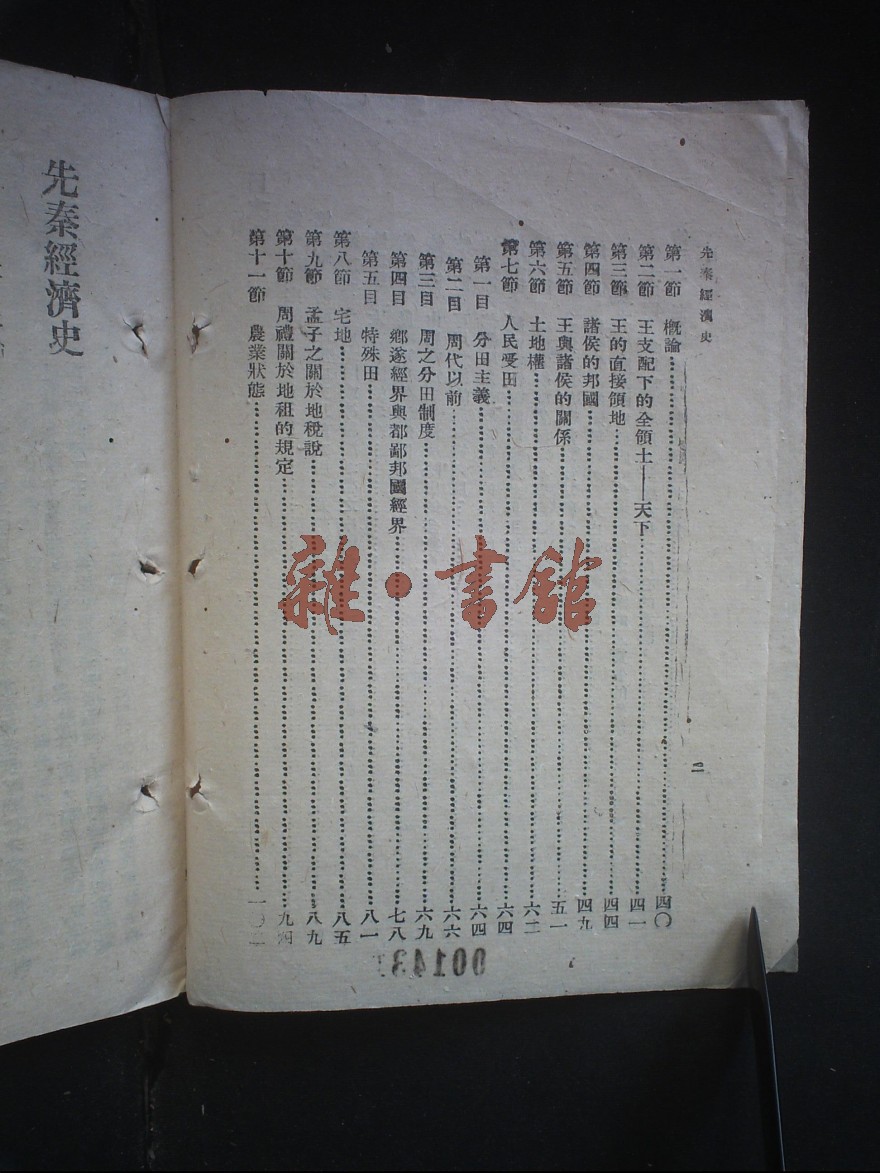 先秦經濟史
二
第一節　概論……四〇
第二節　王支配下的全領土——天下……四一
第三節　王的直接領地……四四
第四節　諸侯的邦國……四九
第五節　王與諸侯的關係……五一
第六節　土地權……六二
第七節　人民受田……六四
第一目　分田主義……六四
第二目　周代以前……六六
第三目　周之分田制度……六九
第四目　鄉遂經界與都鄙邦國經界……七八
第五目　特殊田……八一
第八節　宅地……八五
第九節　孟子之關於地稅說……八九
第十節　周禮關於地租的規定……九四
第十一節　農業狀態……一〇二
先秦經濟史
雜·書館